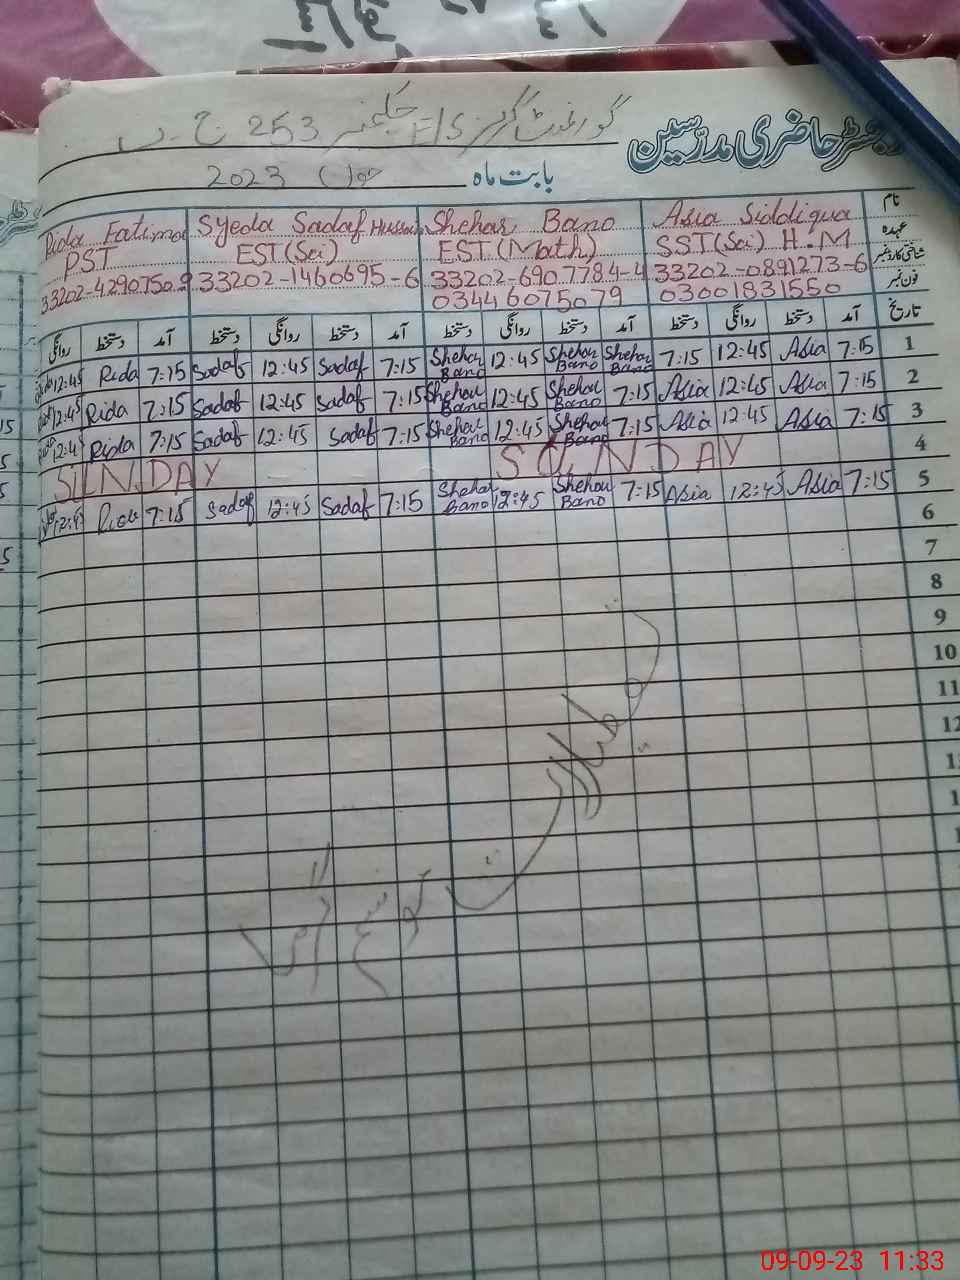 رجسٹر حاضری مدرسین گورنمنٹ گرلز E/S چک نمبر 253 ج۔ب
بابت ماہ جون 2023
نام Asia Siddiqua Shehar Bano Syeda Sadaf Hussain Rida Fatima
عہدہ SST(Sci) H.M EST(Math) EST(Sci) PST
شناختی کارڈ نمبر 33202-0891273-6 33202-6907784-4 33202-1460695-6 33202-4290750-
فون نمبر 03001831550 03446075079
تاریخ آمد دستخط روانگی دستخط آمد دستخط روانگی دستخط آمد دستخط روانگی دستخط آمد دستخط روانگی
1 7:15 Asia 12:45 7:15 Shehar Bano Shehar Bano 12:45 Shehar Bano 7:15 Sadaf 12:45 Sadaf 7:15 Rida 12:45
2 7:15 Asia 12:45 Asia 7:15 Shehar Bano 12:45 Shehar Bano 7:15 Sadaf 12:45 Sadaf 7:15 Rida 12:45
3 7:15 Asia 12:45 Asia 7:15 Shehar Bano 12:45 Shehar Bano 7:15 Sadaf 12:45 Sadaf 7:15 Rida 12:45
4 SUNDAY SUNDAY
5 7:15 Asia 12:45 Asia 7:15 Shehar Bano 12:45 Shehar Bano 7:15 Sadaf 12:45 Sadaf 7:15 Rida 12:45
6
7
8
9
10
11
12
تعطیلات موسم گرما
09-09-23 11:33